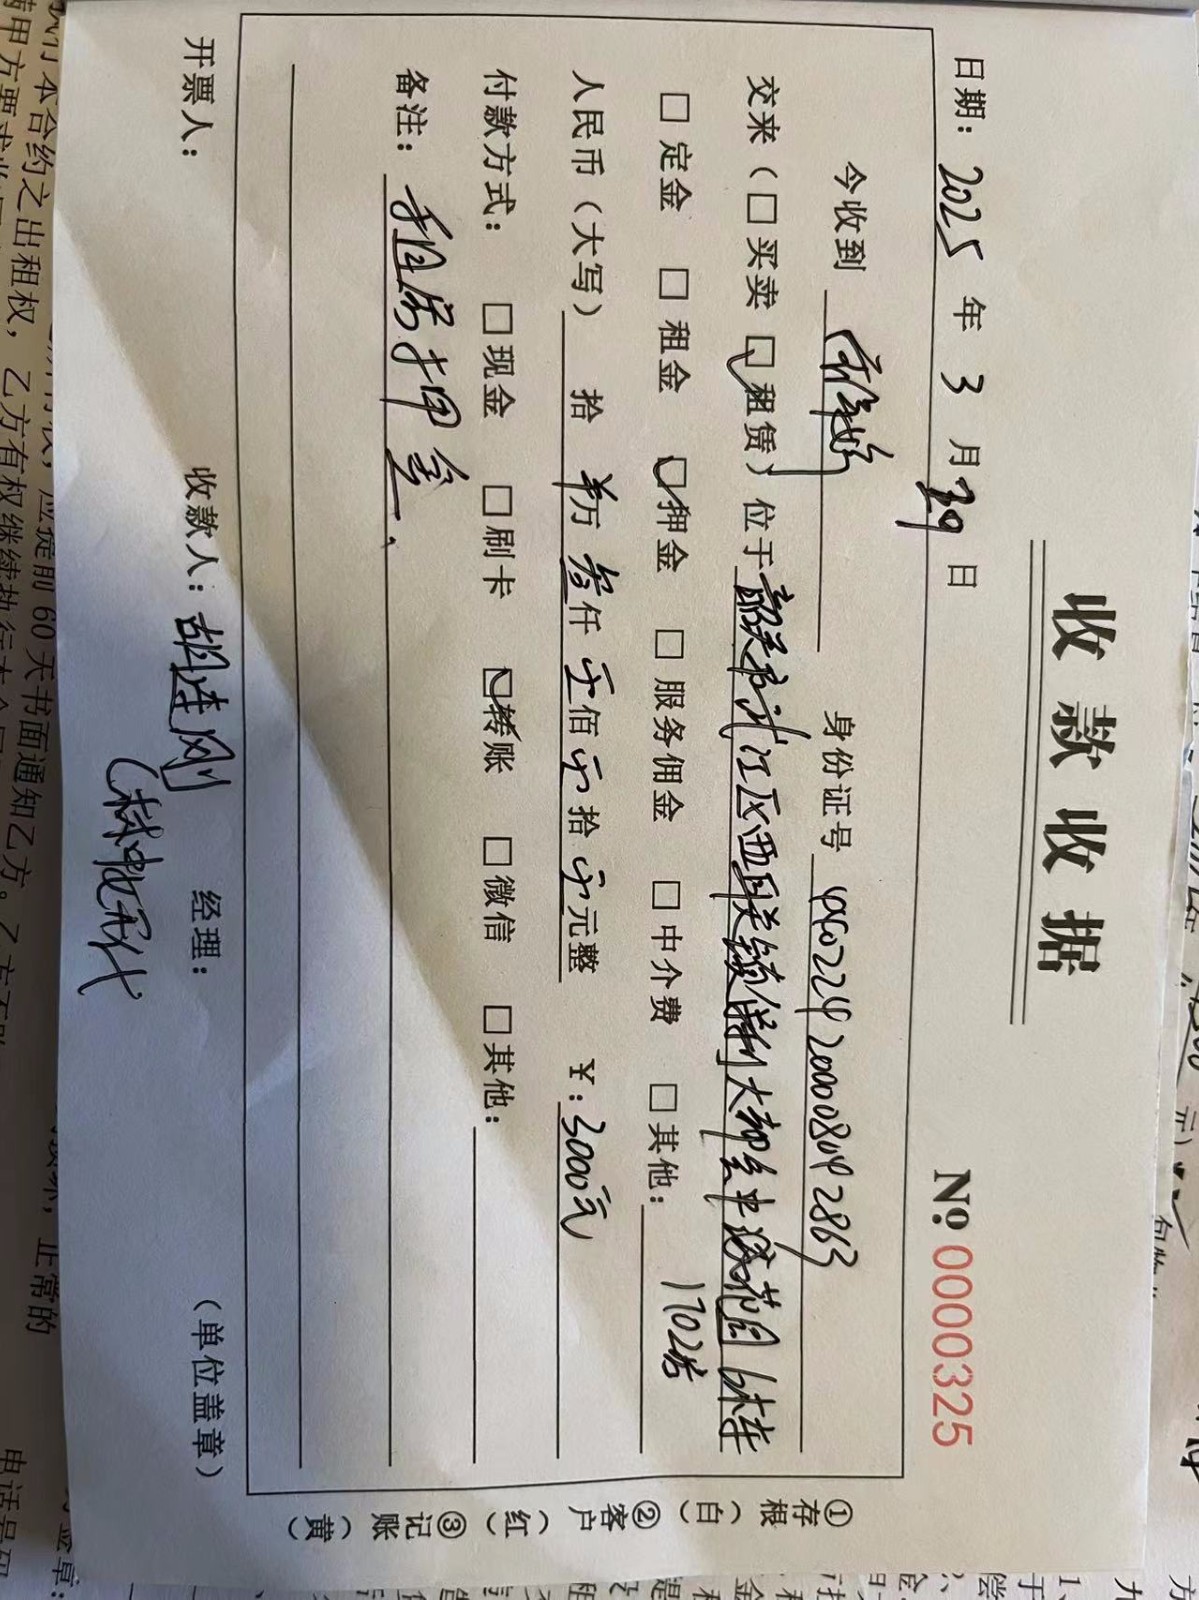 收款收据
№ 0000325
日期：2025 年 3 月 29 日
今收到 身份证号 440224200008042863
交来（□买卖 ☑租赁）位于韶关市浈江区西联镇保利大都会中悦花园6栋
1702房
□定金 □租金 ☑押金 □服务佣金 □中介费 □其他：
人民币（大写） 拾 万 叁仟 零佰 零拾 零元整 ¥：3000元
付款方式： □现金 □刷卡 ☑转账 □微信 □其他：
备注：租房押金.
开票人： 收款人：胡连刚 经理： （单位盖章）
①存根（白） ②客户（红） ③记账（黄）
本合约之出租权，乙方有权继续执行
应提前60天书面通知乙方。
正常的